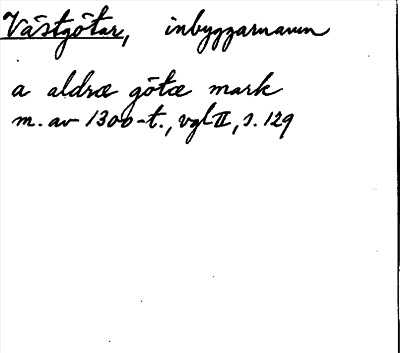 Västgötar, inbyggarnamn
a aldræ götæ mark
m. av 1300-t., vgl II, s. 129